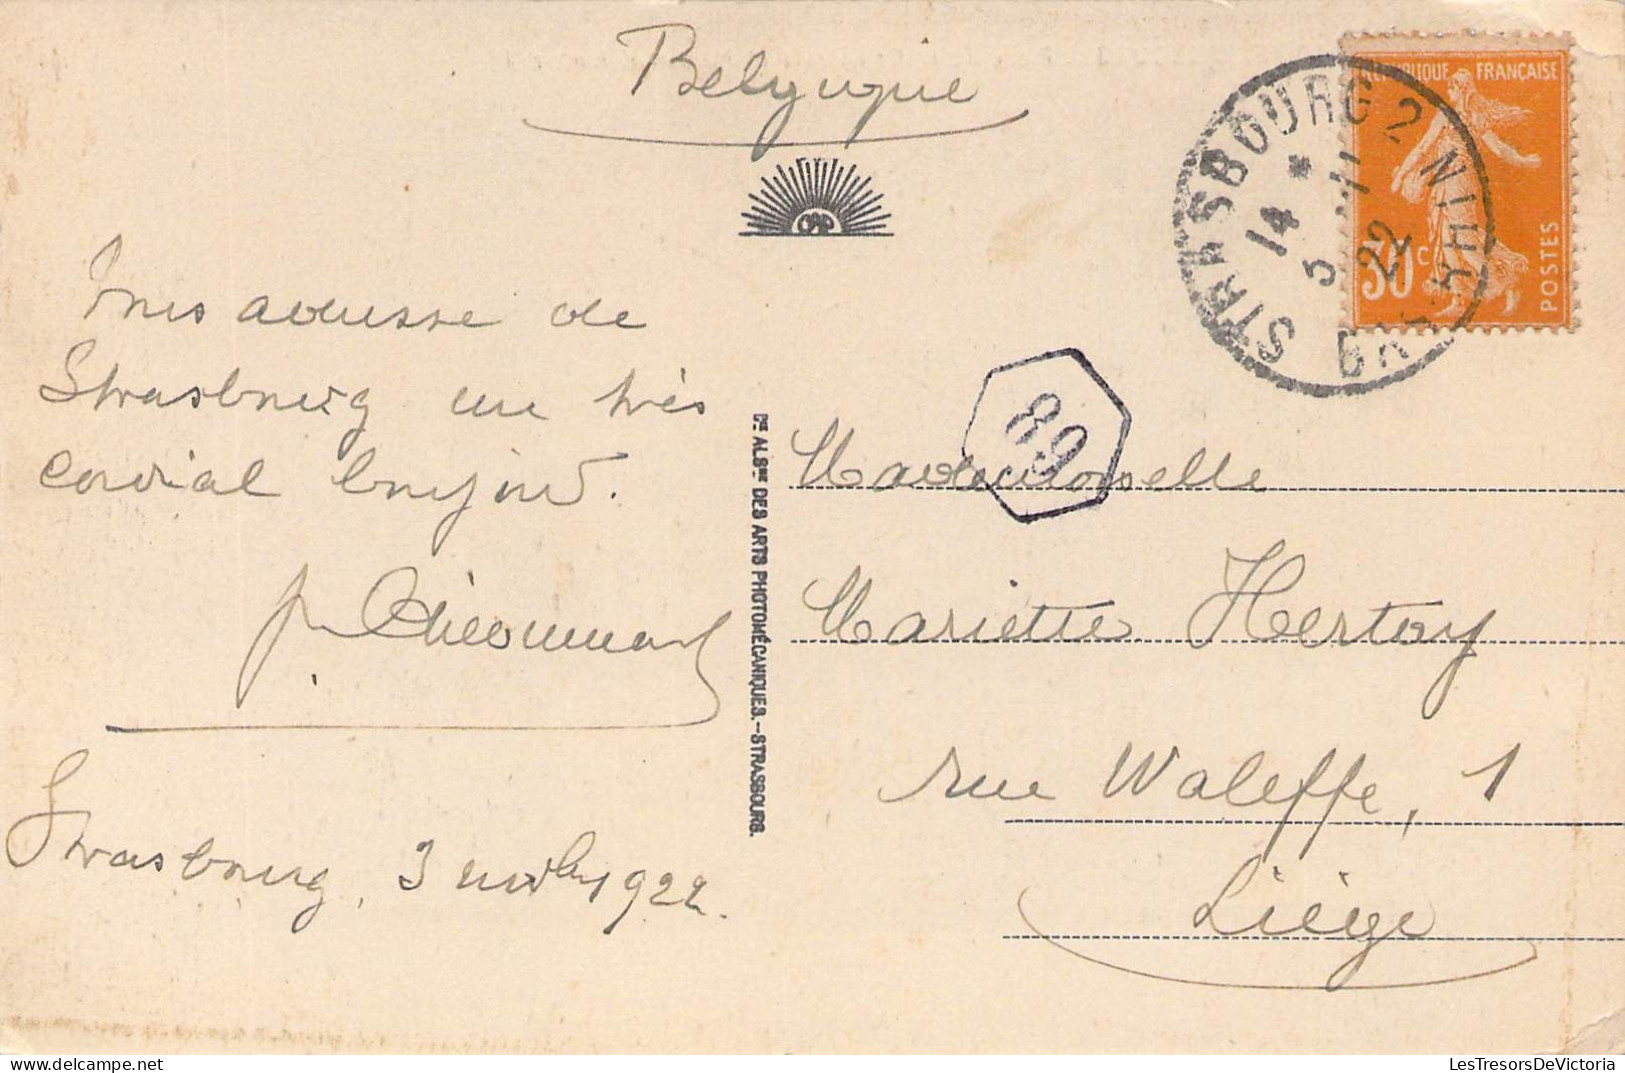 Belgique
RÉPUBLIQUE FRANÇAISE
30c
POSTES
STRASBOURG 2
BAS RHIN
14 *
3 11 22
adresse de
Strasbourg un très
cordial bonjour.
Strasbourg, 3 novbre 1922.
Cie ALSne DES ARTS PHOTOMÉCANIQUES.-STRASBOURG.
89
Mademoiselle
Mariette Hertoy
rue Waleffe, 1
Liège
LesTresorsDeVictoria